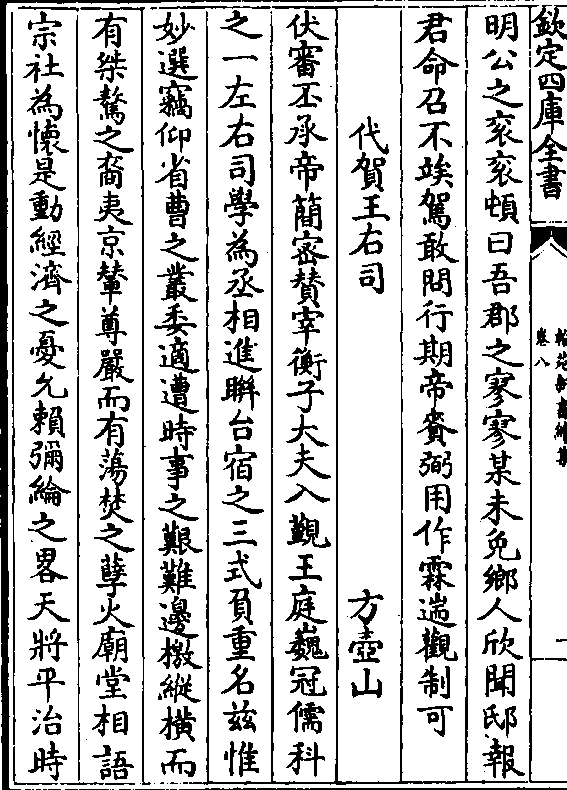 欽定四庫全書
卷八
明公之衮衮頓曰吾郡之寥寥某未免鄉人欣聞邸報
君命召不俟駕敢問行期帝賚弼用作霖遄觀制可
代賀王右司 方壺山
伏審丕承帝簡密賛宰衡子大夫入觀王庭巍冠儒科
之一左右司學為丞相進聨台宿之三式負重名兹惟
妙選竊仰省曹之叢委適遭時事之艱難邊檄縱橫而
有桀驁之裔夷京輦尊嚴而有蕩焚之孽火廟堂相語
宗社為懐是動經濟之憂允頼彌綸之畧天將平治時